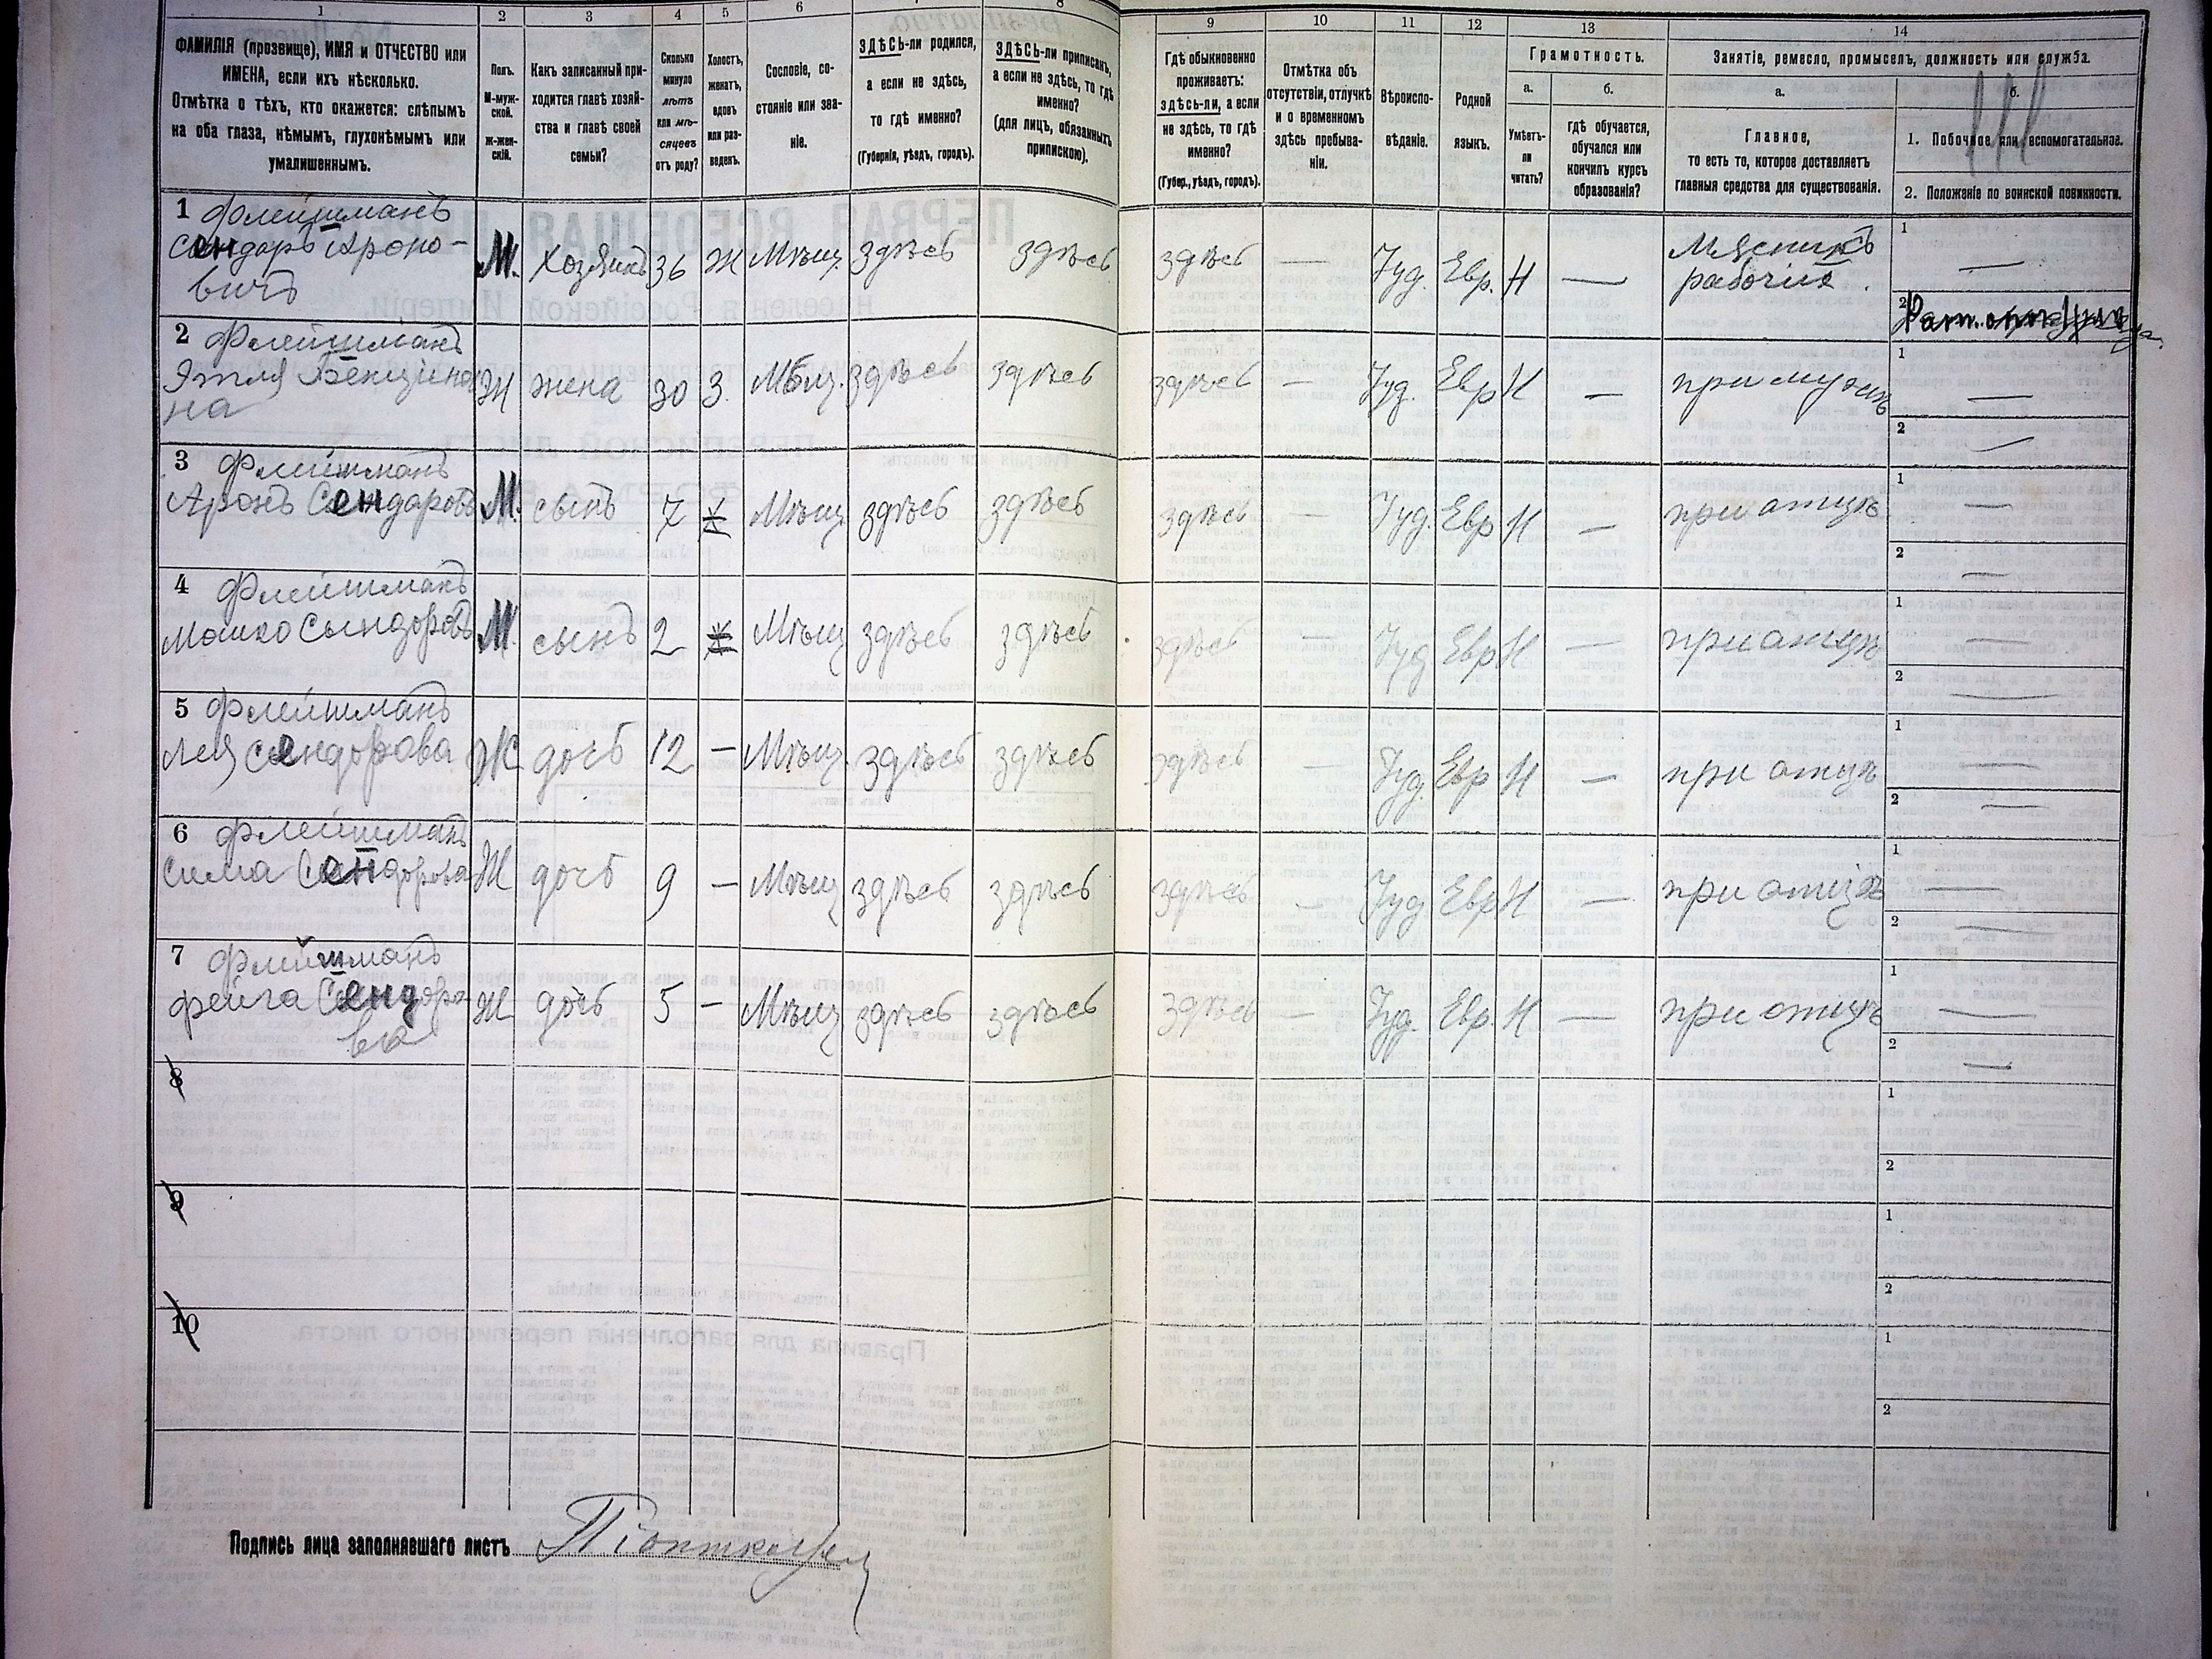 1 2 3 4 5 6 7 8 9 10 11 12 13 14
ФАМИЛІЯ (прозвище), ИМЯ и ОТЧЕСТВО или
ИМЕНА, если ихъ нѣсколько.
Отмѣтка о тѣхъ, кто окажется: слѣпымъ
на оба глаза, нѣмымъ, глухонѣмымъ или
умалишеннымъ.
Полъ.
М-муж-
ской.
Ж-жен-
скій.
Какъ записанный при-
ходится главѣ хозяй-
ства и главѣ своей
семьи?
Сколько
минуло
лѣтъ
или мѣ-
сяцевъ
отъ роду?
Холостъ,
женатъ,
вдовъ
или раз-
веденъ.
Сословіе, со-
стояніе или зва-
ніе.
ЗДѢСЬ-ли родился,
а если не здѣсь,
то гдѣ именно?
(Губернія, уѣздъ, городъ).
ЗДѢСЬ-ли приписанъ,
а если не здѣсь, то гдѣ
именно?
(для лицъ, обязанныхъ
припискою).
Гдѣ обыкновенно
проживаетъ:
здѣсь-ли, а если
не здѣсь, то гдѣ
именно?
(Губер., уѣздъ, городъ).
Отмѣтка объ
отсутствіи, отлучкѣ
и о временномъ
здѣсь пребыва-
ніи.
Вѣроиспо-
вѣданіе.
Родной
языкъ.
Грамотность.
а.
Умѣетъ-
ли
читать?
б.
гдѣ обучается,
обучался или
кончилъ курсъ
образованія?
Занятіе, ремесло, промыселъ, должность или служба.
а.
Главное,
то есть то, которое доставляетъ
главныя средства для существованія.
б.
1. Побочное или вспомогательное.
2. Положеніе по воинской повинности.
1 Флейшманъ
Сендаръ Ароно-
вичъ
М. Хозяинъ 36 Ж Мѣщ. здѣсь здѣсь здѣсь — Іуд. Евр. Н —
Мясникъ
рабочій.
1 —
2
2 Флейшманъ
Этля
на
Ж жена 30 З. Мѣщ. здѣсь здѣсь здѣсь — Іуд. Евр Н — при мужѣ
1 —
2 —
3 Флейшманъ
Аронъ Сендаровъ
М. сынъ 7 Мѣщ здѣсь здѣсь здѣсь — Іуд. Евр Н — при отцѣ
1 —
2 —
4 Флейшманъ
Мошко Сындоровъ
М. сынъ 2 Мѣщ здѣсь здѣсь здѣсь — Іуд Евр Н — при отцѣ
1 —
2 —
5 Флейшманъ
Лея Сендорова
Ж дочь 12 — Мѣщ. здѣсь здѣсь здѣсь — Іуд. Евр Н — при отцѣ
1 —
2 —
6 Флейшманъ
Сима Сендорова
Ж дочь 9 — Мѣщ здѣсь здѣсь здѣсь — Іуд Евр Н — при отцѣ
1 —
2 —
7 Флейшманъ
Фейга Сендоро-
ва
Ж дочь 5 — Мѣщ здѣсь здѣсь здѣсь — Іуд. Евр. Н — при отцѣ
1 —
2 —
8
1
2
9
1
2
10
1
2
Подпись лица заполнявшаго листъ